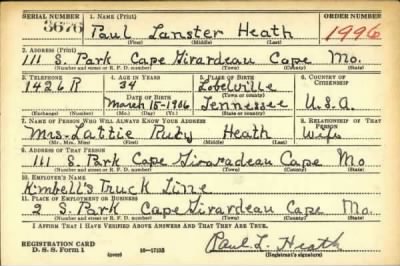 SERIAL NUMBER 1. NAME (Print) ORDER NUMBER
3676 Paul Lanster Heath 1996
(First) (Middle) (Last)
2. ADDRESS (Print)
111 S. Park Cape Girardeau Cape Mo.
(Number and street or R. F. D. number) (Town) (County) (State)
3. TELEPHONE 4. AGE IN YEARS 5. PLACE OF BIRTH 6. COUNTRY OF CITIZENSHIP
1426 R 34 Lobelville
DATE OF BIRTH (Town or county)
March 15-1906 Tennessee U.S.A.
(Exchange) (Number) (Mo.) (Day) (Yr.) (State or country)
7. NAME OF PERSON WHO WILL ALWAYS KNOW YOUR ADDRESS 8. RELATIONSHIP OF THAT PERSON
Mrs. Lattie Ruby Heath Wife
(Mr., Mrs., Miss) (First) (Middle) (Last)
9. ADDRESS OF THAT PERSON
111 S. Park Cape Giraradeau Cape Mo
(Number and street or R. F. D. number) (Town) (County) (State)
10. EMPLOYER'S NAME
Kimbell's Truck Line
11. PLACE OF EMPLOYMENT OR BUSINESS
2 S. Park Cape Girardeau Cape Mo.
(Number and street or R. F. D. number) (Town) (County) (State)
I AFFIRM THAT I HAVE VERIFIED ABOVE ANSWERS AND THAT THEY ARE TRUE.
REGISTRATION CARD
D. S. S. Form 1 (over) 16-17105 Paul L. Heath
(Registrant's signature)